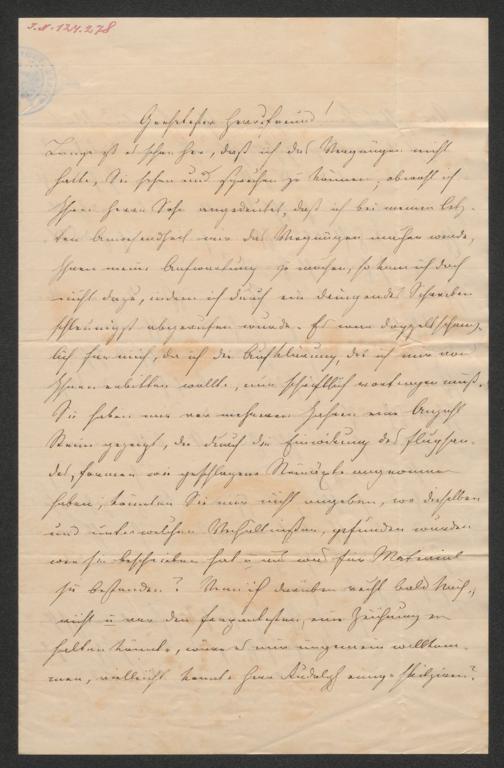 J.N. 124.278
Geehrtester Herr u Freund!
Lange ist es schon her, daß ich das Vergnügen nicht
hatte, Sie sehen und sprechen zu können, obwohl ich
Ihren Herrn Sohn angedeutet, daß ich bei meiner letz-
ten Anwesenheit mir das Vergnügen machen werde,
Ihnen meine Aufwartung zu machen, so kam ich doch
nicht dazu, indem ich durch ein dringendes Schreiben
schleunigst abgerufen wurde. Es war doppelt
lich für mich, da ich die Aufklärung, die ich mir von
Ihnen erbitten wollte, nun schriftlich vortragen muß.
Sie haben mir vor mehreren Jahren eine Anzahl
Stein gezeigt, die durch die Einwirkung des Flugsan-
des, Formen wie geschlagene Steinäxte angenommen
haben, könnten Sie mir nicht angeben, wo dieselben
und unter welchen Verhältnissen, gefunden wurden
wer sie beschrieben hat u aus was für Material
sie bestanden? Wenn ich darüber recht bald Nach-
richt u von den frappantesten, eine Zeichnung er
halten könnte, wäre es mir ungemein willkom-
men, vielleicht könnte Herr Rudolph einige skizziren?